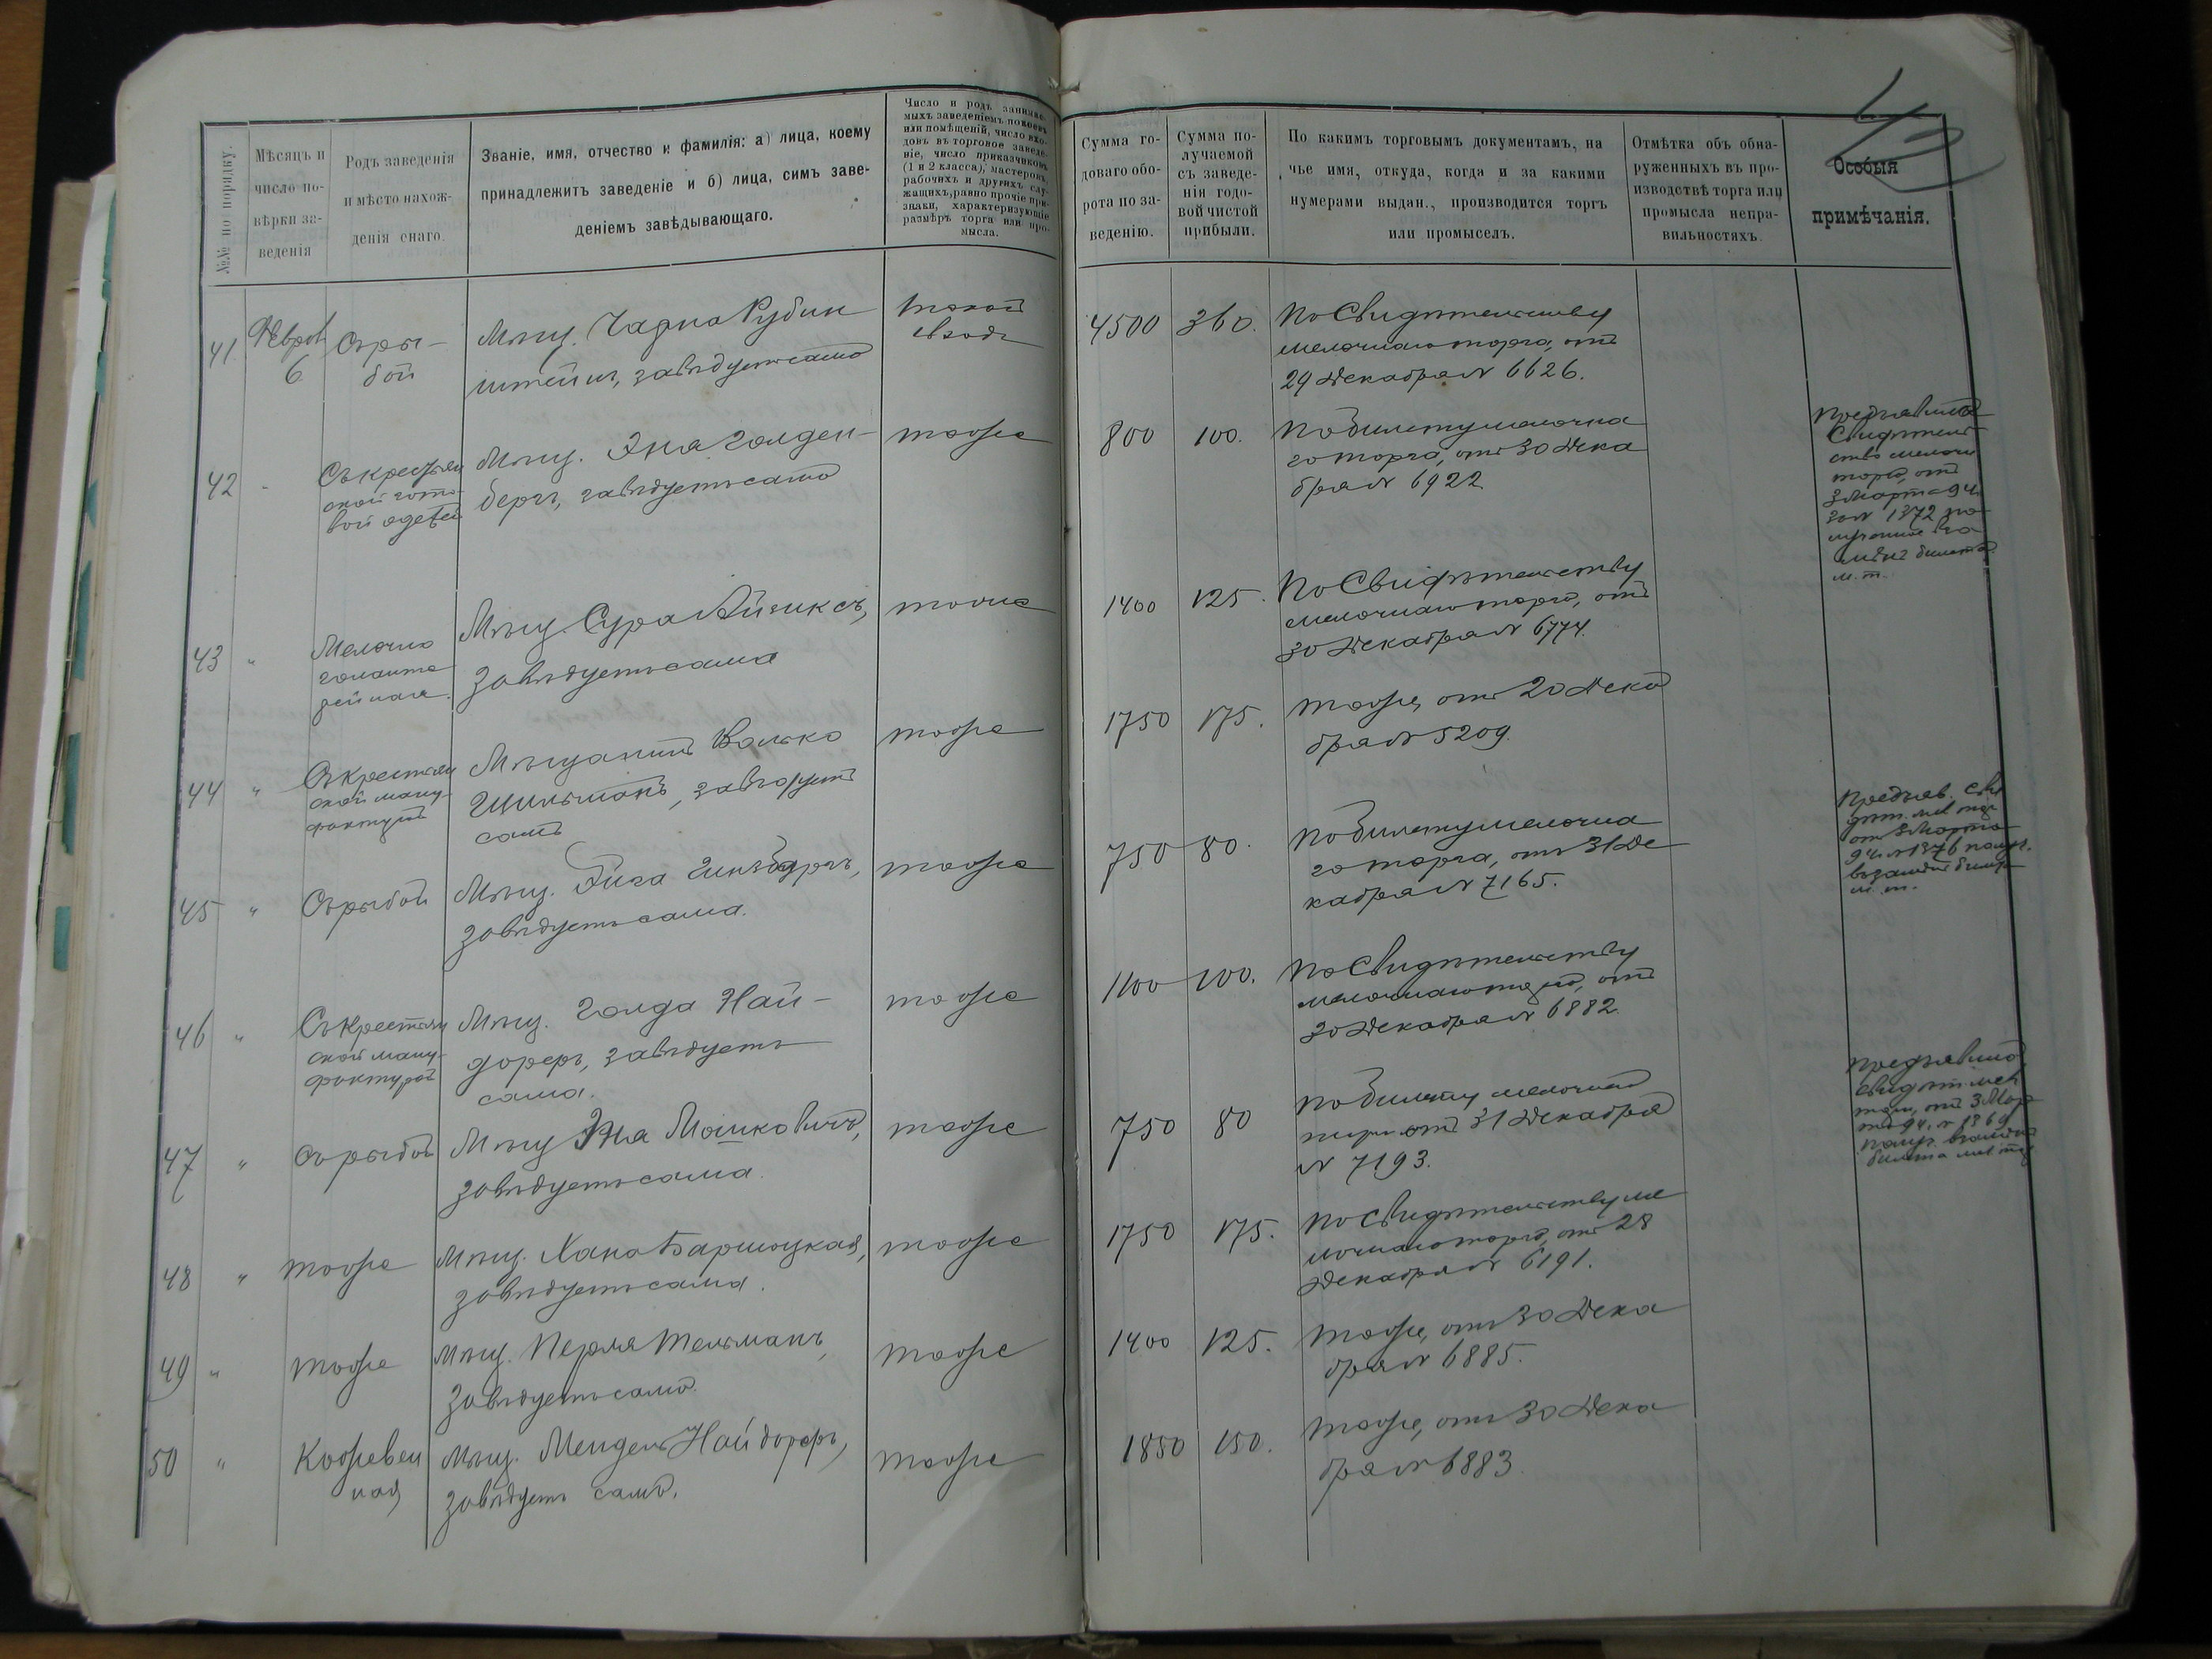 №№ по порядку.
Мѣсяцъ и
число по-
вѣрки за-
веденія
Родъ заведенія
и мѣсто нахож-
денія онаго.
Званіе, имя, отчество и фамилія: а) лица, коему
принадлежитъ заведеніе и б) лица, симъ заве-
деніемъ завѣдывающаго.
Число и родъ занимае-
мыхъ заведеніемъ покоевъ
или помѣщеній, число вхо-
довъ въ торговое заведе-
ніе, число приказчиковъ
(1 и 2 класса), мастеровъ,
рабочихъ и другихъ слу-
жащихъ, равно прочіе при-
знаки, характеризующіе
размѣръ торга или про-
мысла.
Сумма го-
доваго обо-
рота по за-
веденію.
Сумма по-
лучаемой
съ заведе-
нія годо-
вой чистой
прибыли.
По какимъ торговымъ документамъ, на
чье имя, откуда, когда и за какими
нумерами выдан., производится торгъ
или промыселъ.
Отмѣтка объ обна-
руженныхъ въ про-
изводствѣ торга или
промысла непра-
вильностяхъ.
Особыя
примѣчанія.
41
6
Съ ры-
бой
Мѣщ. Чарна Рубин
штейнъ, завѣдуетъ сама
входъ
4500
360.
По Свидѣтельству
мелочнаго торга, отъ
29 Декабря № 6626.
42
Съ крестьян
ской гото-
вой одеждой
Мѣщ. Эня Голден-
бергъ, завѣдуетъ сама
тоже
800
100.
По билету мелочна
го торга, отъ 30 Дека
бря № 6922
Предъявила
Свидѣтель
ство мелочн
торга, отъ
3 Марта 94 г.
за № 1372 по
лученное вза
мѣнъ билета
м. т.
43
"
Мелочно
галанте
рейная.
Мѣщ. Сура Айзиксъ,
завѣдуетъ сама
тоже
1400
125.
По Свидѣтельству
мелочнаго торга, отъ
30 Декабря № 6774.
44
"
Съ крестьян
ской ману-
фактурой
Мѣщанинъ Волько
Шильманъ, завѣдуетъ
самъ
тоже
1750
175.
тоже, отъ 20 Дека
бря № 5209.
45
"
Съ рыбой
Мѣщ. Гинзбургъ,
завѣдуетъ сама.
тоже
750
80.
По билету мелочна
го торга, отъ 31 Де
кабря № 7165.
Предъяв. Сви
дѣт. мел. тор
от 3 Марта
94 г. № 1376 получ.
взамѣнъ билета
м. т.
46
"
Съ крестьян
ской ману-
фактурой
Мѣщ. Голда Най-
дорфъ, завѣдуетъ
сама.
тоже
1100
100.
По Свидѣтельству
мелочнаго торга, отъ
30 Декабря № 6882.
47
"
Съ рыбой
Мѣщ. Эня Мошковичъ,
завѣдуетъ сама.
тоже
750
80
По билету мелочнаго
торга отъ 31 Декабря
№ 7193.
Предъявила
свидѣт. мел
торг, отъ 3 Мар
та 94 г. № 1369
получ. взамѣнъ
билета мел. тор
48
"
тоже
Мѣщ. Хана Баршоцкая,
завѣдуетъ сама.
тоже
1750
175.
По Свидѣтельству ме
лочнаго торга, отъ 28
Декабря № 6191.
49
"
тоже
Мѣщ. Перля Тельманъ,
завѣдуетъ сама.
тоже
1400
125.
тоже, отъ 30 Дека
бря № 6885.
50
"
Кожевен
ная
Мѣщ. Мендель Найдорфъ,
завѣдуетъ самъ.
тоже
1850
150.
тоже, отъ 30 Дека
бря № 6883.